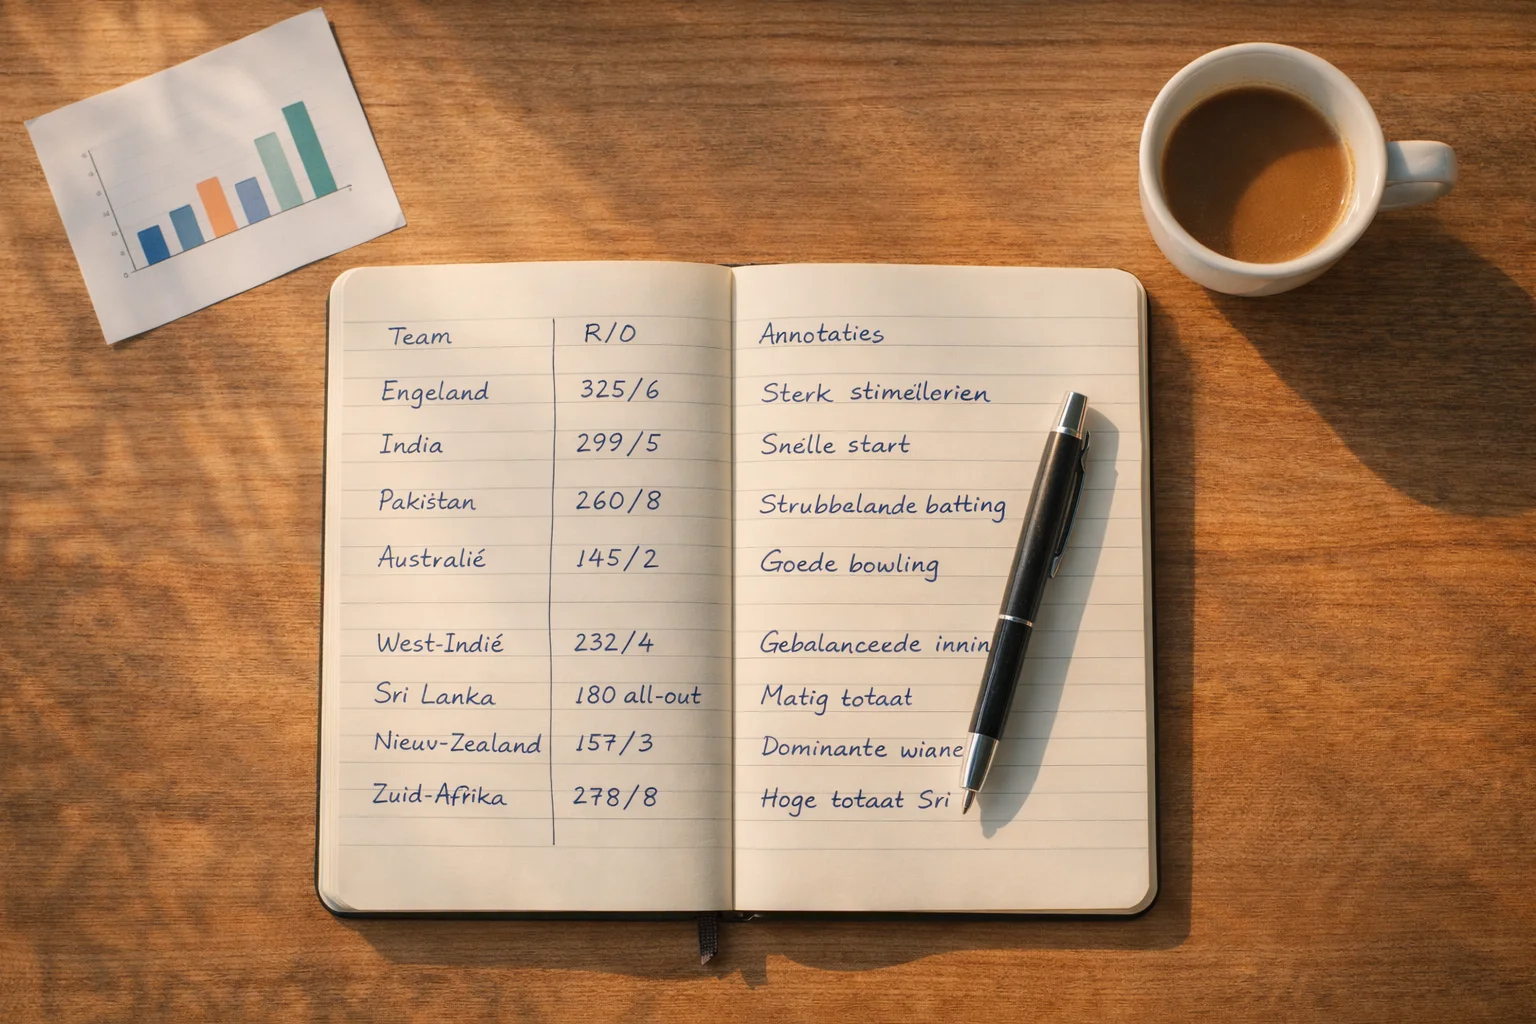 Team R/O Annotaties
Engeland 325/6 Sterk stimellerien
India 299/5 Snélle start
Pakistan 260/8 Strubbelande batting
Australié 145/2 Goede bowling
West-Indié 232/4 Gebalanceede innin
Sri Lanka 180 all-out Matig totaat
Nieuv-Zealand 157/3 Dominante wiane
Zuid-Afrika 278/8 Hoge totaat Sri